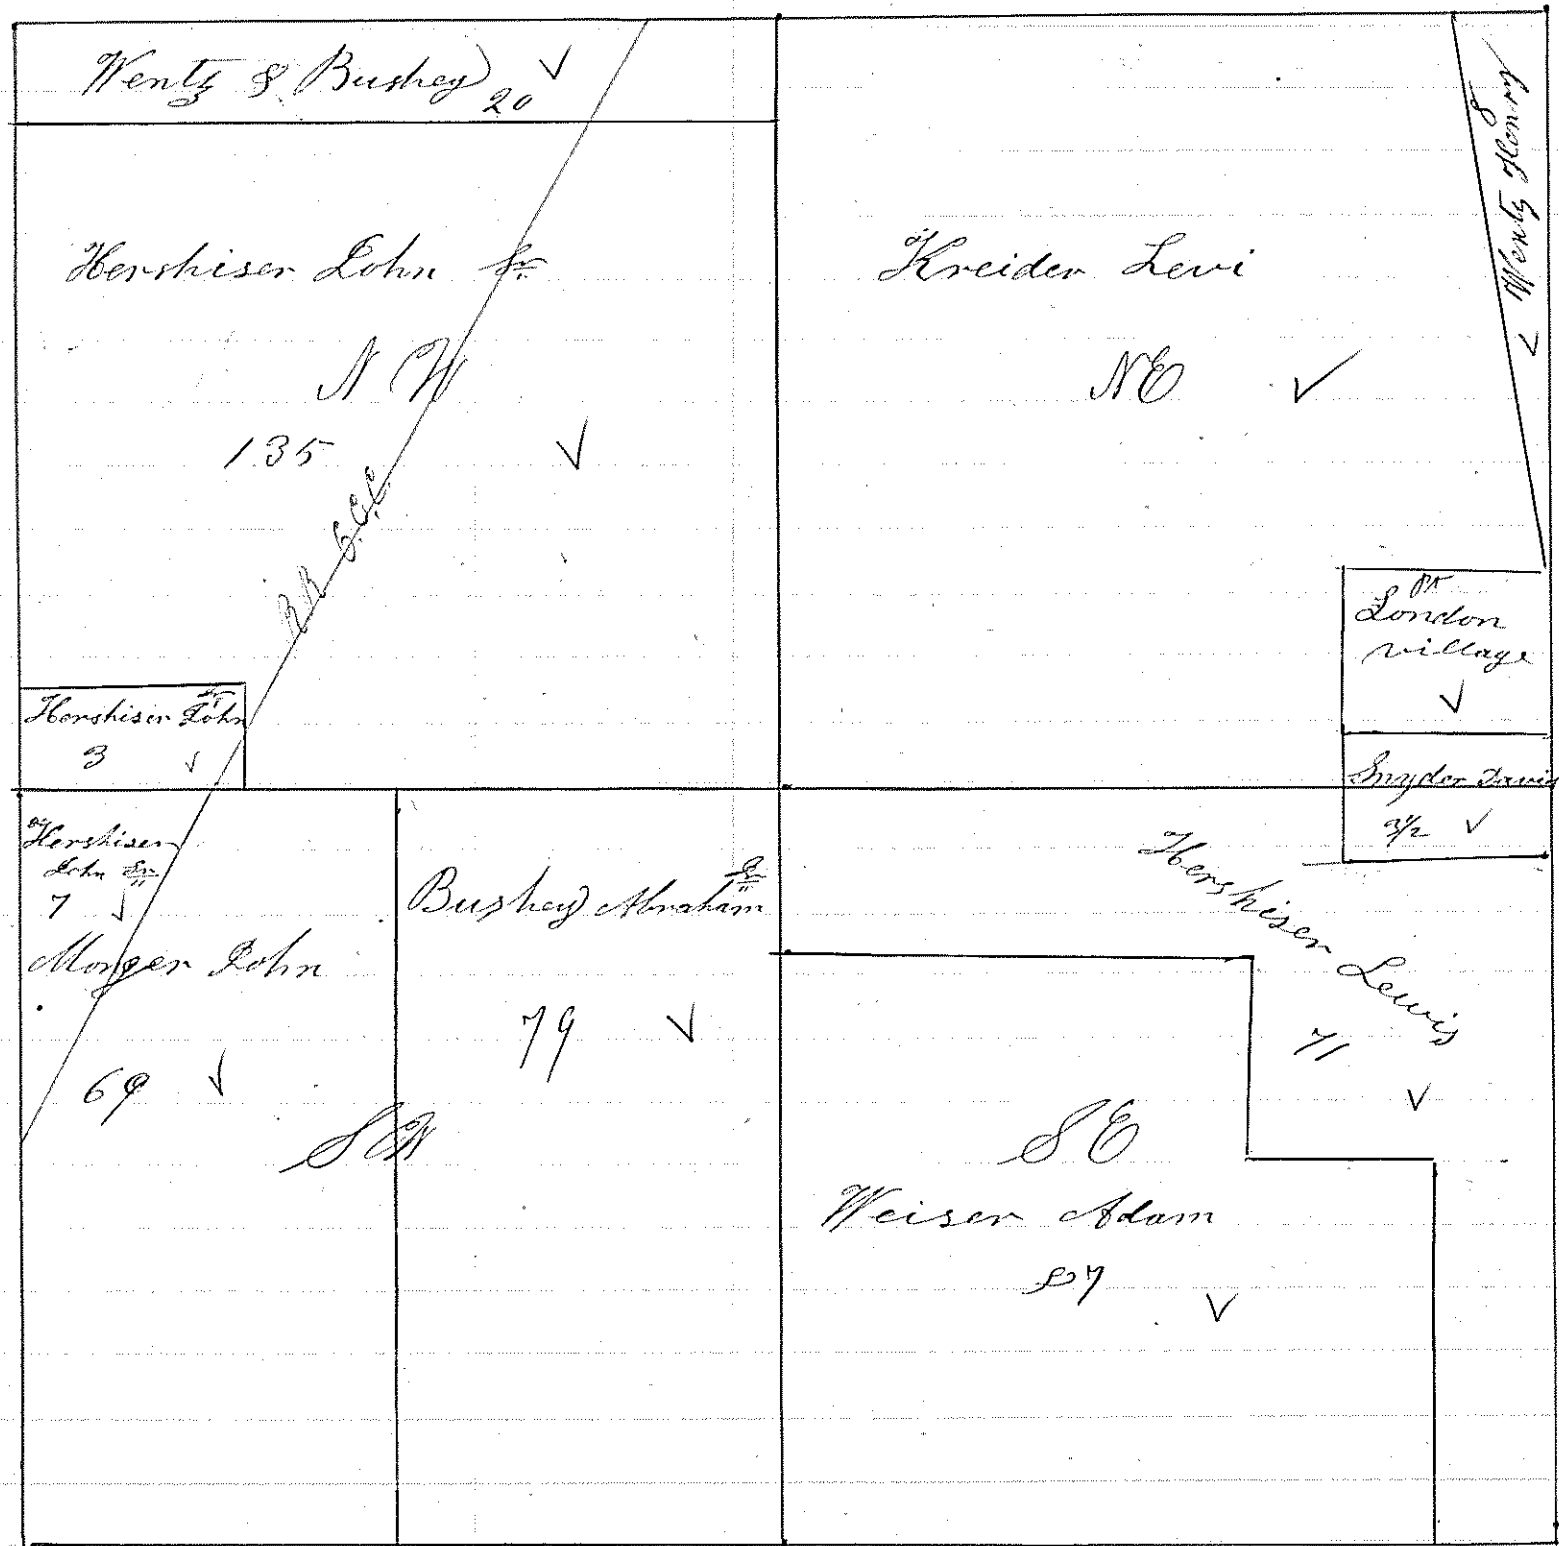 Wentz & Bushey 20 ✓
Hershiser John Sr.
N W
135 ✓
Hershiser John
3 ✓
Kreider Levi
NE ✓
Wentz Henry
8 ✓
Pt
London
village
✓
Snyder David
3½ ✓
Hershiser
John Sr.
7 ✓
Monger John
69 ✓
SW
Bushey Abraham
79 ✓
Hershiser Lewis
71
✓
SE
Weiser Adam
87
✓